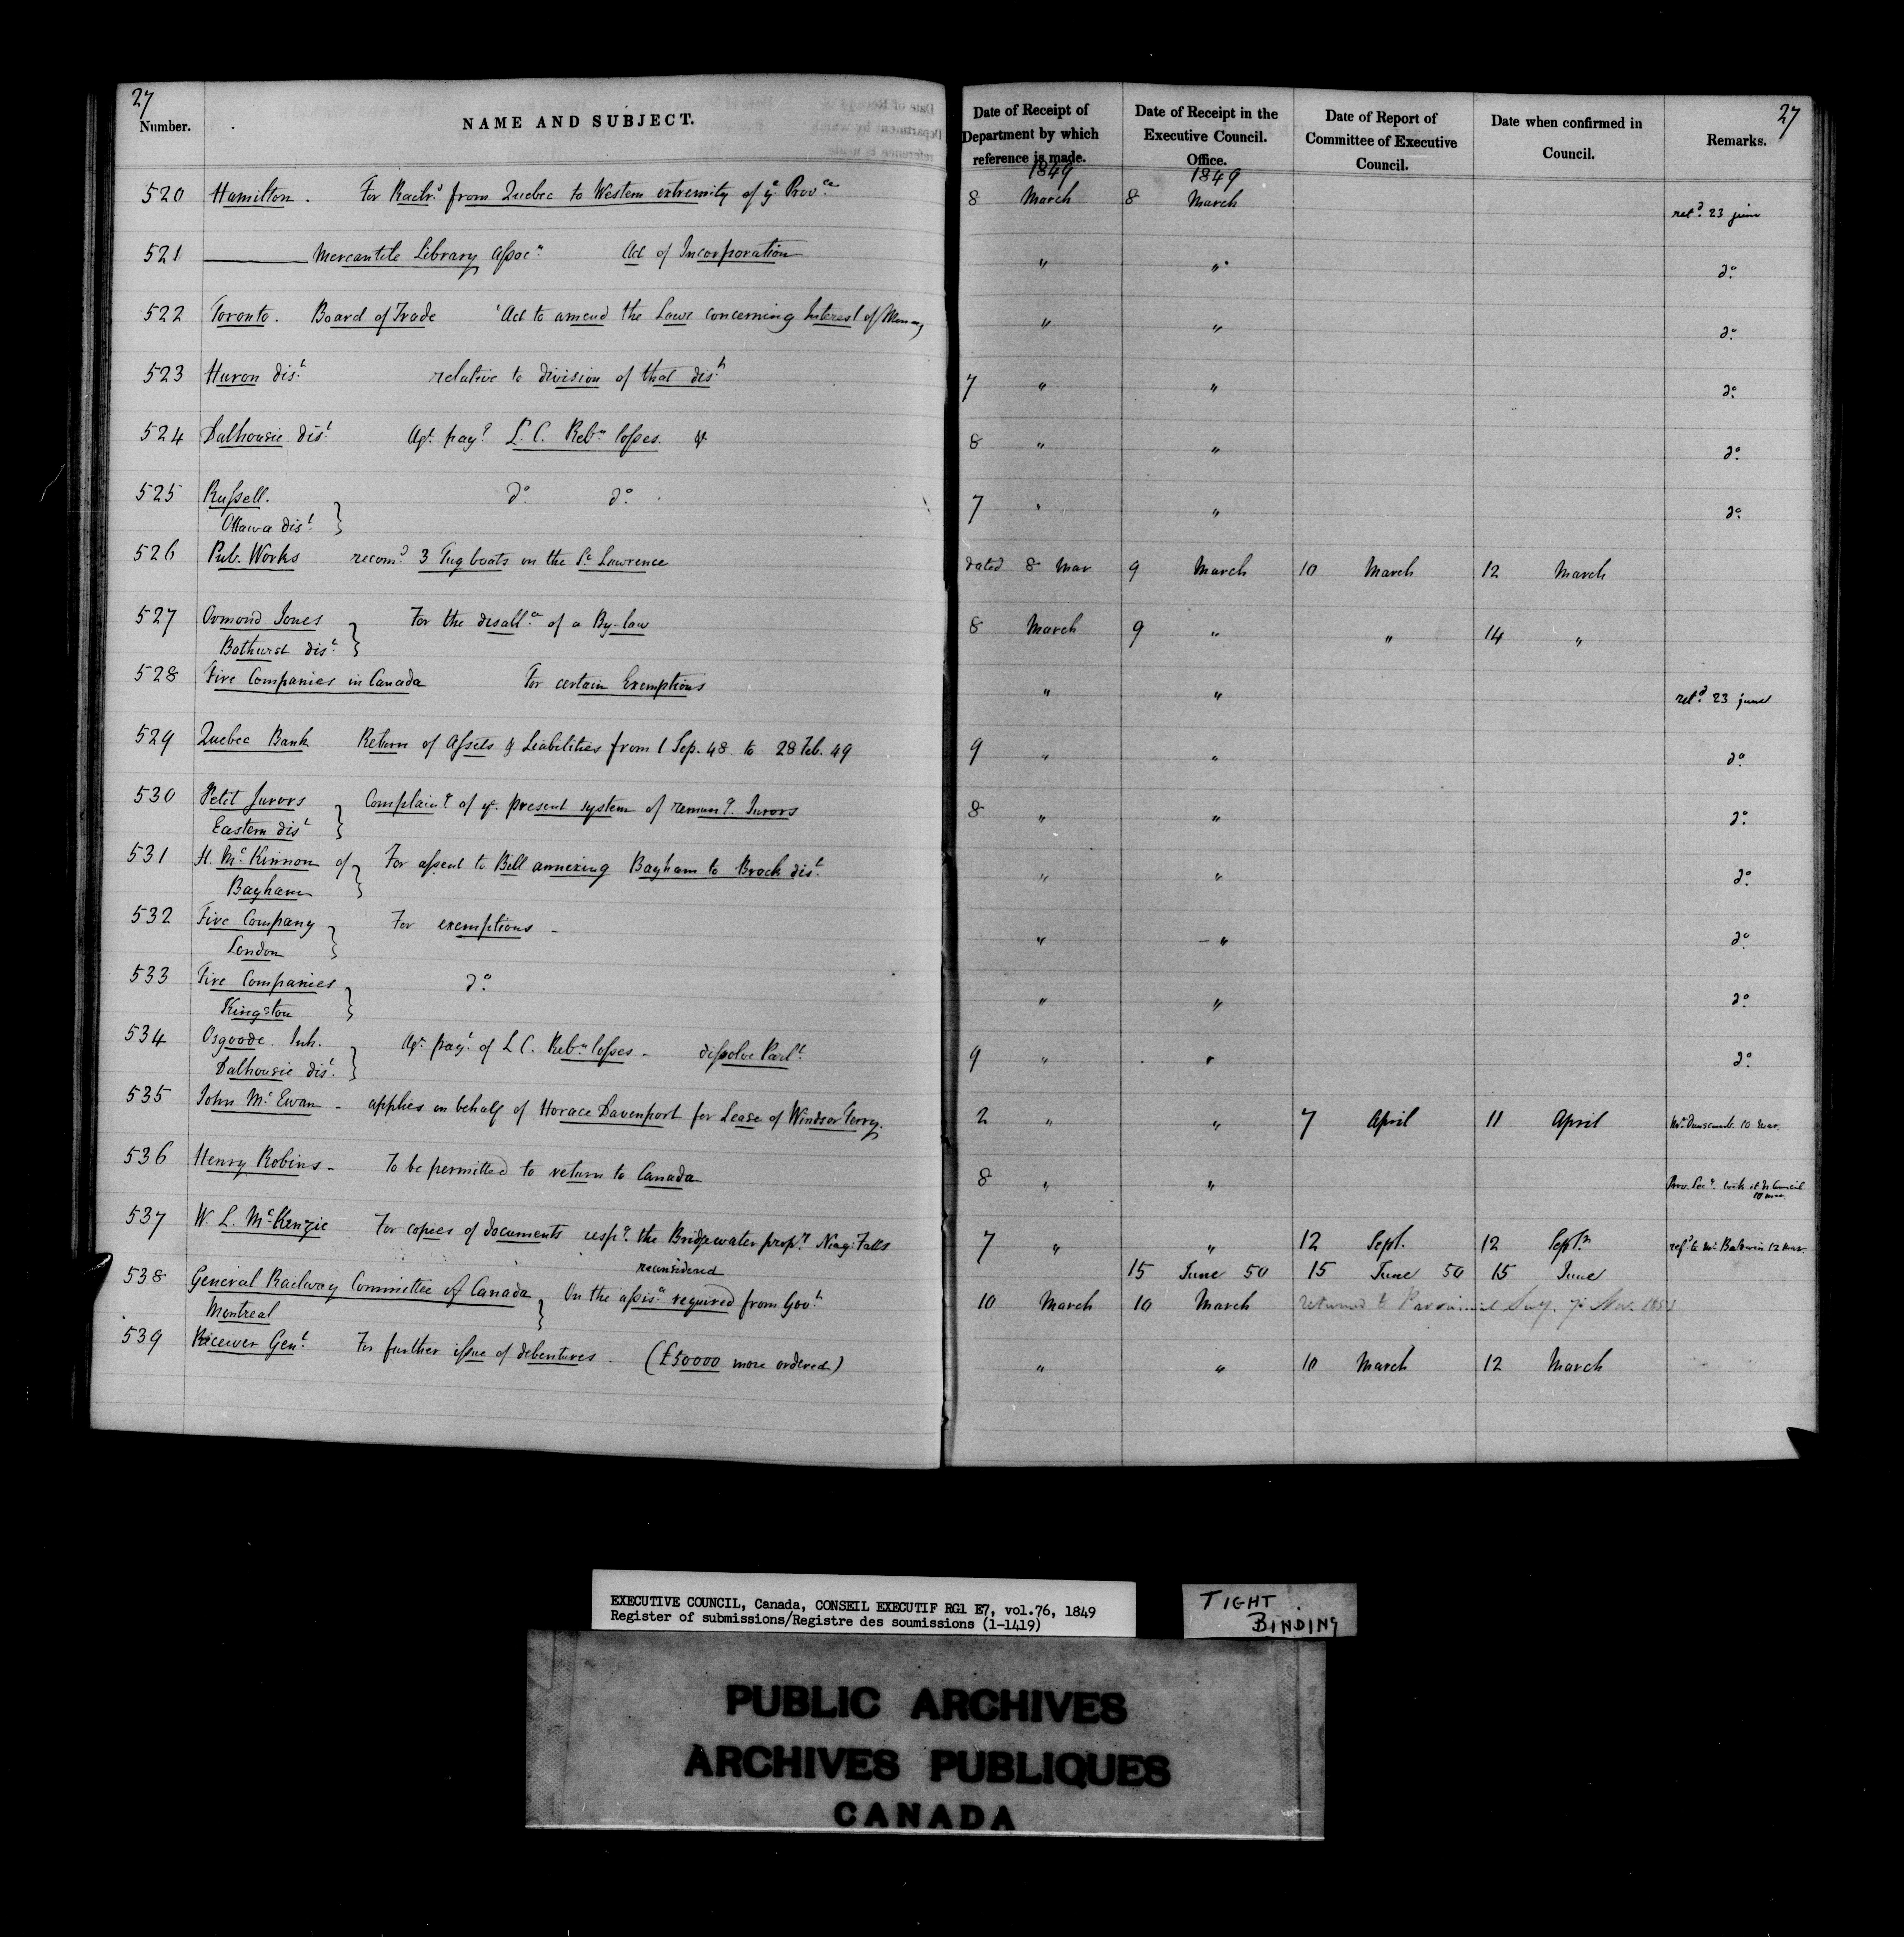 27
Number. NAME AND SUBJECT. Date of Receipt of Department by which reference is made. Date of Receipt in the Executive Council. Office. Date of Report of Committee of Executive Council. Date when confirmed in Council. Remarks. 27
1849 1849
520 Hamilton. For Railrd from Quebec to Western extremity of ye Prov.ce 8 March 8 March retd. 23 june
521 ——— Mercantile Library Assocn. Act of Incorporation " " do.
522 Toronto. Board of Trade Act to amend the Laws concerning Interest of Money " " do.
523 Huron dist. relative to division of that dist. 7 " " do.
524 Dalhousie dist. Agt. payt. L. C. Rebn losses. &c 8 " " do.
525 Russell. do. do. 7 " " do.
Ottawa dist. }
526 Pub. Works recomd. 3 Tug boats on the St. Lawrence dated 8 Mar 9 March 10 March 12 March
527 Ormond Jones For the disallce. of a By-law 8 March 9 " " 14 "
Bathurst dist. }
528 Fire Companies in Canada For certain Exemptions " " retd. 23 june
529 Quebec Bank Return of Assets & Liabilities from 1 Sep. 48 to 28 Feb. 49 9 " " do.
530 Petit Jurors Complaing of ye present system of remung. Jurors 8 " " do.
Eastern dist }
531 H. McKinnon of For assent to Bill annexing Bayham to Brock dist. " " do.
Bayham }
532 Fire Company For exemptions - " " do.
London }
533 Fire Companies do. " " do.
Kingston }
534 Osgoode. Inh. Agt. payt. of L C. Rebn losses - dissolve Parlt. 9 " " do.
Dalhousie dist. }
535 John McEwan - applies on behalf of Horace Davenport for Lease of Windsor Ferry. 2 " " 7 April 11 April 10 Mar.
536 Henry Robins - To be permitted to return to Canada 8 " " Prov. Secy. took it to Council
10 Mar.
537 W. L. McKenzie For copies of documents respg. the Bridgewater propy. Niag: Falls 7 " " 12 Sept. 12 Septr. refd to Mr. Baldwin 12 Mar.
reconsidered 15 June 50 15 June 50 15 June
538 General Railway Committee of Canada On the assisce. required from Govt. 10 March 10 March returned to
Montreal }
539 Receiver Genl. For further issue of debentures. (£50000 more ordered) " " 10 March 12 March
EXECUTIVE COUNCIL, Canada, CONSEIL EXECUTIF RG1 E7, vol.76, 1849
Register of submissions/Registre des soumissions (1-1419)
TIGHT
BINDING
PUBLIC ARCHIVES
ARCHIVES PUBLIQUES
CANADA